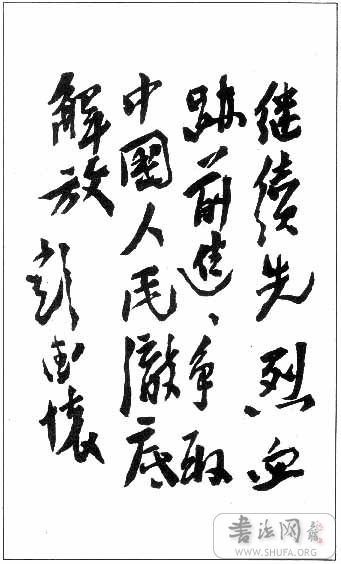 继续先烈血
跡前進、争取
中國人民澈底
解放 彭德懷
书法网
WWW.SHUFA.ORG